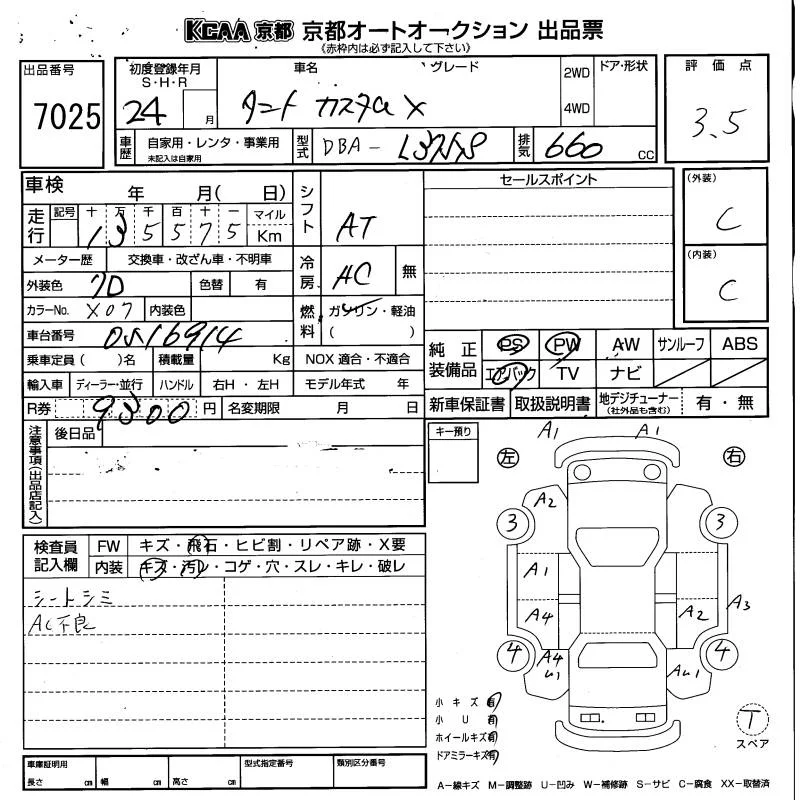 KCAA 京都 京都オートオークション 出品票
《赤枠内は必ず記入して下さい》
出品番号
7025
初度登録年月
S・H・R
24 月
車名 グレード
タント カスタム X
2WD
4WD
ドア・形状
評価点
3.5
車歴
自家用・レンタ・事業用
未記入は自家用
型式
DBA - L375S
排気
660 cc
車検 年 月( 日)
走行
記号 十 万 千 百 十 一 マイル
1 3 5 5 7 5 Km
メーター歴 交換車・改ざん車・不明車
外装色 色替 有
カラーNo. X07 内装色
車台番号 0516914
乗車定員( )名 積載量 Kg NOX 適合・不適合
輸入車 ディーラー・並行 ハンドル 右H・左H モデル年式 年
R券 9300 円 名変期限 月 日
シフト
AT
冷房
AC 無
燃料
ガソリン・軽油
( )
セールスポイント
(外装)
C
(内装)
C
純正装備品
PS PW AW サンルーフ ABS
エアバック TV ナビ
新車保証書 取扱説明書 地デジチューナー 有・無
(社外品も含む)
注意事項(出品店記入)
後日品
キー預り
検査員記入欄
FW キズ・飛石・ヒビ割・リペア跡・X要
内装 キズ・汚レ・コゲ・穴・スレ・キレ・破レ
シートシミ
AC不良
A1 A1
左 右
A2
3 3
A1
A4 A2 A3
4 A4 4
U1 AU1
小キズ有
小U有
ホイールキズ有
ドアミラーキズ有
T
スペア
車庫証明用
長さ cm 幅 cm 高さ cm
型式指定番号
類別区分番号
A-線キズ M-調整跡 U-凹み W-補修跡 S-サビ C-腐食 XX-取替済